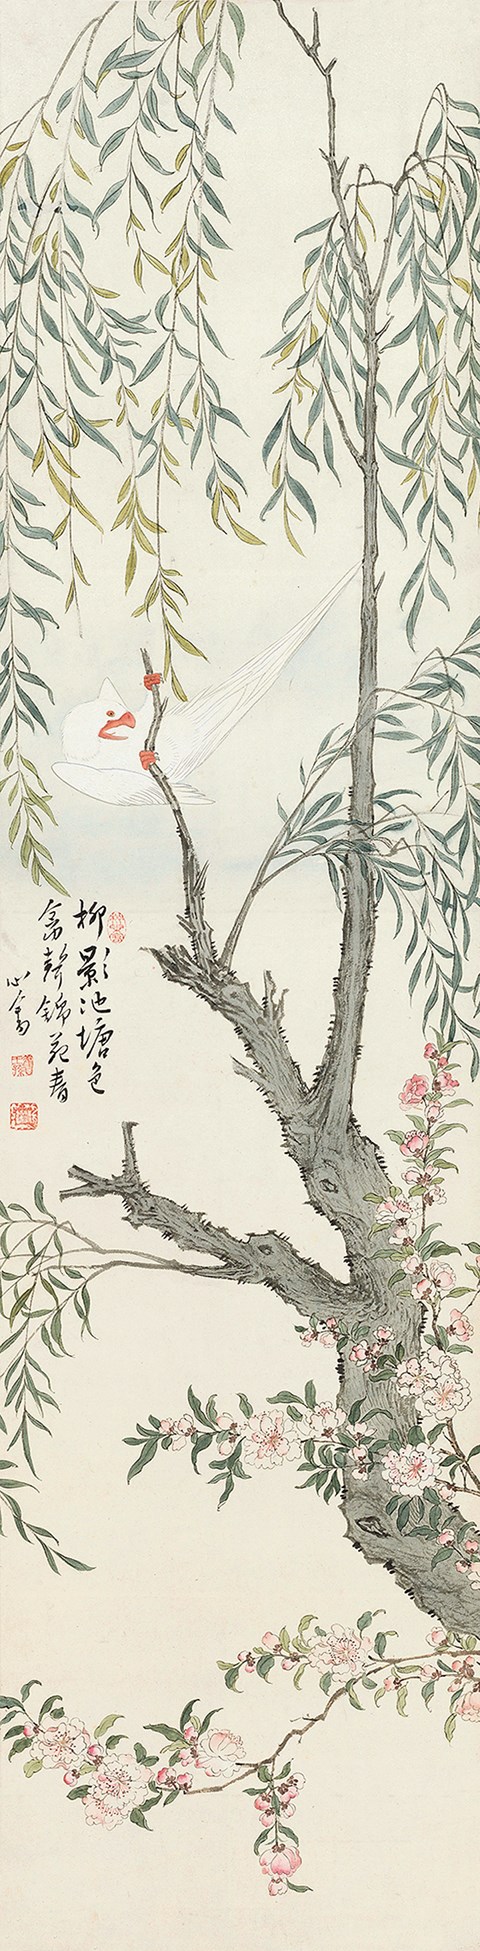 柳影池塘色
禽聲錦花春
心畬